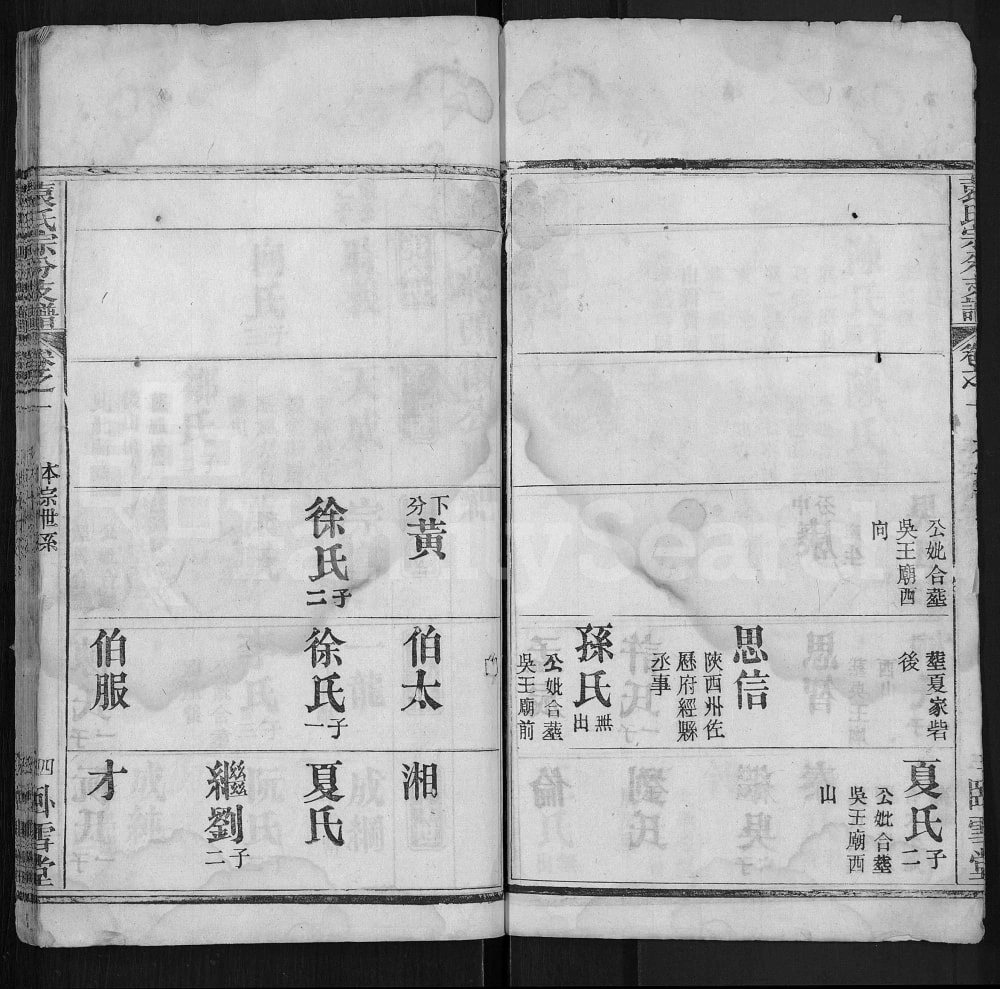 公妣合塟
吳王廟西
向
塟夏家砦
後
思信
陝西州佐
歷府經縣
丞事
孫氏 無出
公妣合塟
吳王廟前
夏氏 二子
公妣合塟
吳王廟西
山
下分 黃
徐氏 二子
伯太
徐氏 一子
伯服
湘
夏氏
繼劉 二子
才
袁氏宗分支譜
卷之一
本宗世系
四
臥雪堂